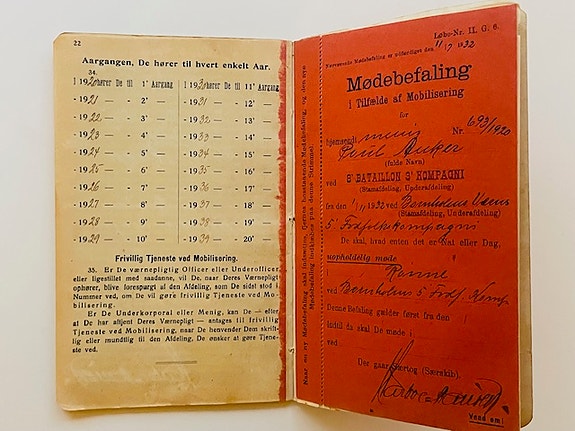 22
Aargangen, De hører til hvert enkelt Aar.
34.
I 1920 hører De til 1' Aargang
- 1921 — — 2' —
- 1922 — — 3' —
- 1923 — — 4' —
- 1924 — — 5' —
- 1925 — — 6' —
- 1926 — — 7' —
- 1927 — — 8' —
- 1928 — — 9' —
- 1929 — — 10' —
I 1930 hører De til 11' Aargang
- 1931 — — 12' —
- 1932 — — 13' —
- 1933 — — 14' —
- 1934 — — 15' —
- 1935 — — 16' —
- 1936 — — 17' —
- 1937 — — 18' —
- 1938 — — 19' —
- 1939 — — 20' —
Frivillig Tjeneste ved Mobilisering.
35. Er De værnepligtig Officer eller Underofficer
eller ligestillet med saadanne, vil De, naar Deres Værnepligt
ophører, blive forespurgt af den Afdeling, De sidst stod i
Nummer ved, om De vil gøre frivillig Tjeneste ved Mo-
bilisering.
Er De Underkorporal eller Menig, kan De — efter
at De har aftjent Deres Værnepligt — antages til frivillig
Tjeneste ved Mobilisering, naar De henvender Dem skrift-
lig eller mundtlig til den Afdeling, De ønsker at gøre Tjene-
ste ved.
Naar en ny Mødebefaling skal indsættes, fjernes hosstaaende Mødebefaling, og den nye
Mødebefaling fastklæbes paa denne Strimmel.
Løbe-Nr. II. G. 6.
Nærværende Mødebefaling er udfærdiget den 11/7 1932
Mødebefaling
i Tilfælde af Mobilisering
for
hjemsendt menig Nr. 693/1920
Poul Anker
(fulde Navn)
ved 8' BATAILLON 3' KOMPAGNI
(Stamafdeling, Underafdeling)
fra den 1/11 1932 ved Bornholms Værns
(Stamafdeling, Underafdeling)
5' Fodfolkskompagni
De skal, hvad enten det er Nat eller Dag,
uopholdelig møde i
Rønne
ved Bornholms 5' Fodf. Komp.
Denne Befaling gælder først fra den
indtil da skal De møde i
ved
Der gaar Særtog (Særskib).
Vend om!